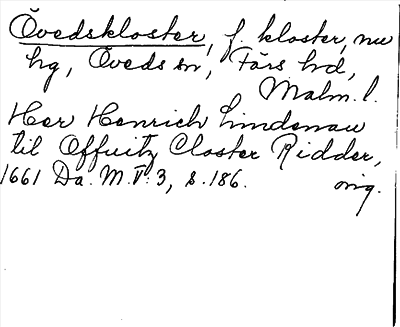 Övedskloster, f. kloster, nu
hg, Öveds sn, Färs hd,
Malm. l.
Her Henrich Lindenau
til Offuitz Closter Ridder,
1661 Da. M. V: 3, s. 186. orig.